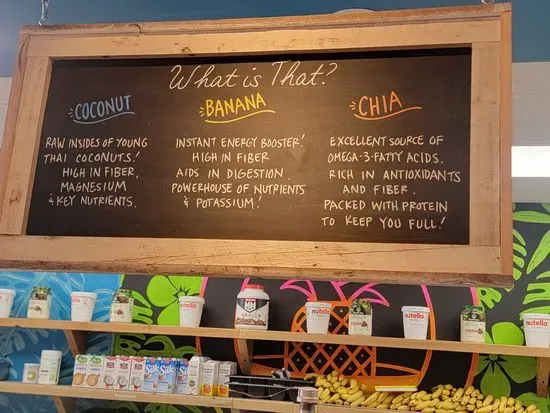 What is That?
COCONUT
RAW INSIDES OF YOUNG
THAI COCONUTS!
HIGH IN FIBER,
MAGNESIUM
& KEY NUTRIENTS.
BANANA
INSTANT ENERGY BOOSTER!
HIGH IN FIBER
AIDS IN DIGESTION.
POWERHOUSE OF NUTRIENTS
& POTASSIUM!
CHIA
EXCELLENT SOURCE OF
OMEGA-3-FATTY ACIDS.
RICH IN ANTIOXIDANTS
AND FIBER.
PACKED WITH PROTEIN
TO KEEP YOU FULL!
nutella
nutella
nutella
nutella
nutella
Silk
Silk